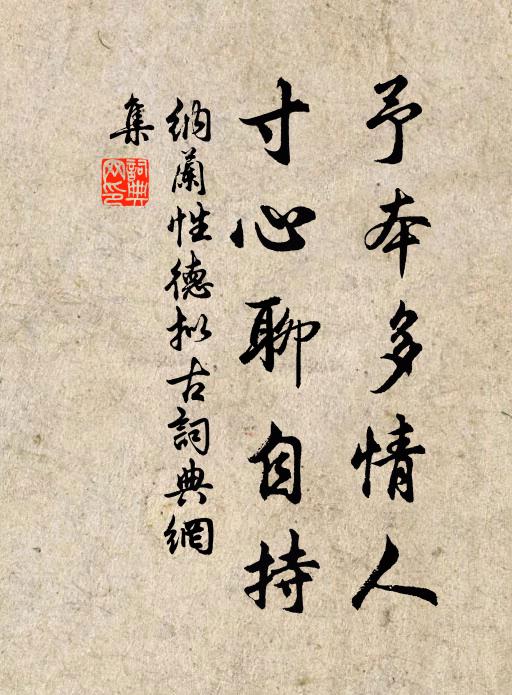 予本多情人
寸心聊自持
納蘭性德拟古詞典網
集
詞典網印